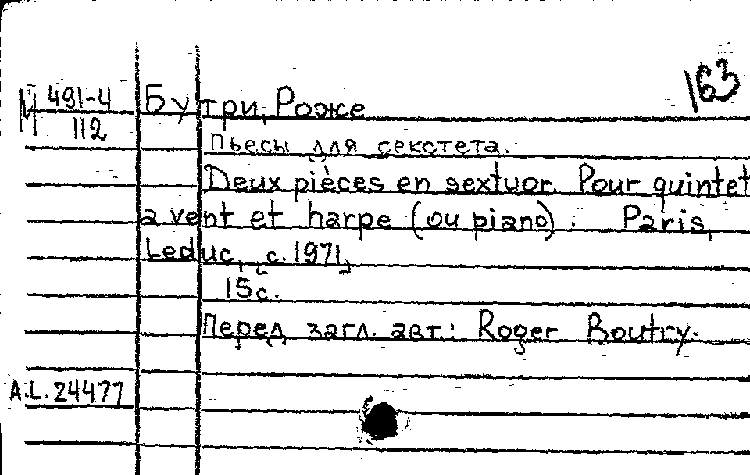 163
М 491-4
112
Бутри, Роже
Пьесы для секстета.
Deux pièces en sextuor. Pour quintet
a vent et harpe (ou piano). Paris,
Leduc, c. 1971,
15с.
Перед загл. авт.: Roger Boutry.
A.L.24477